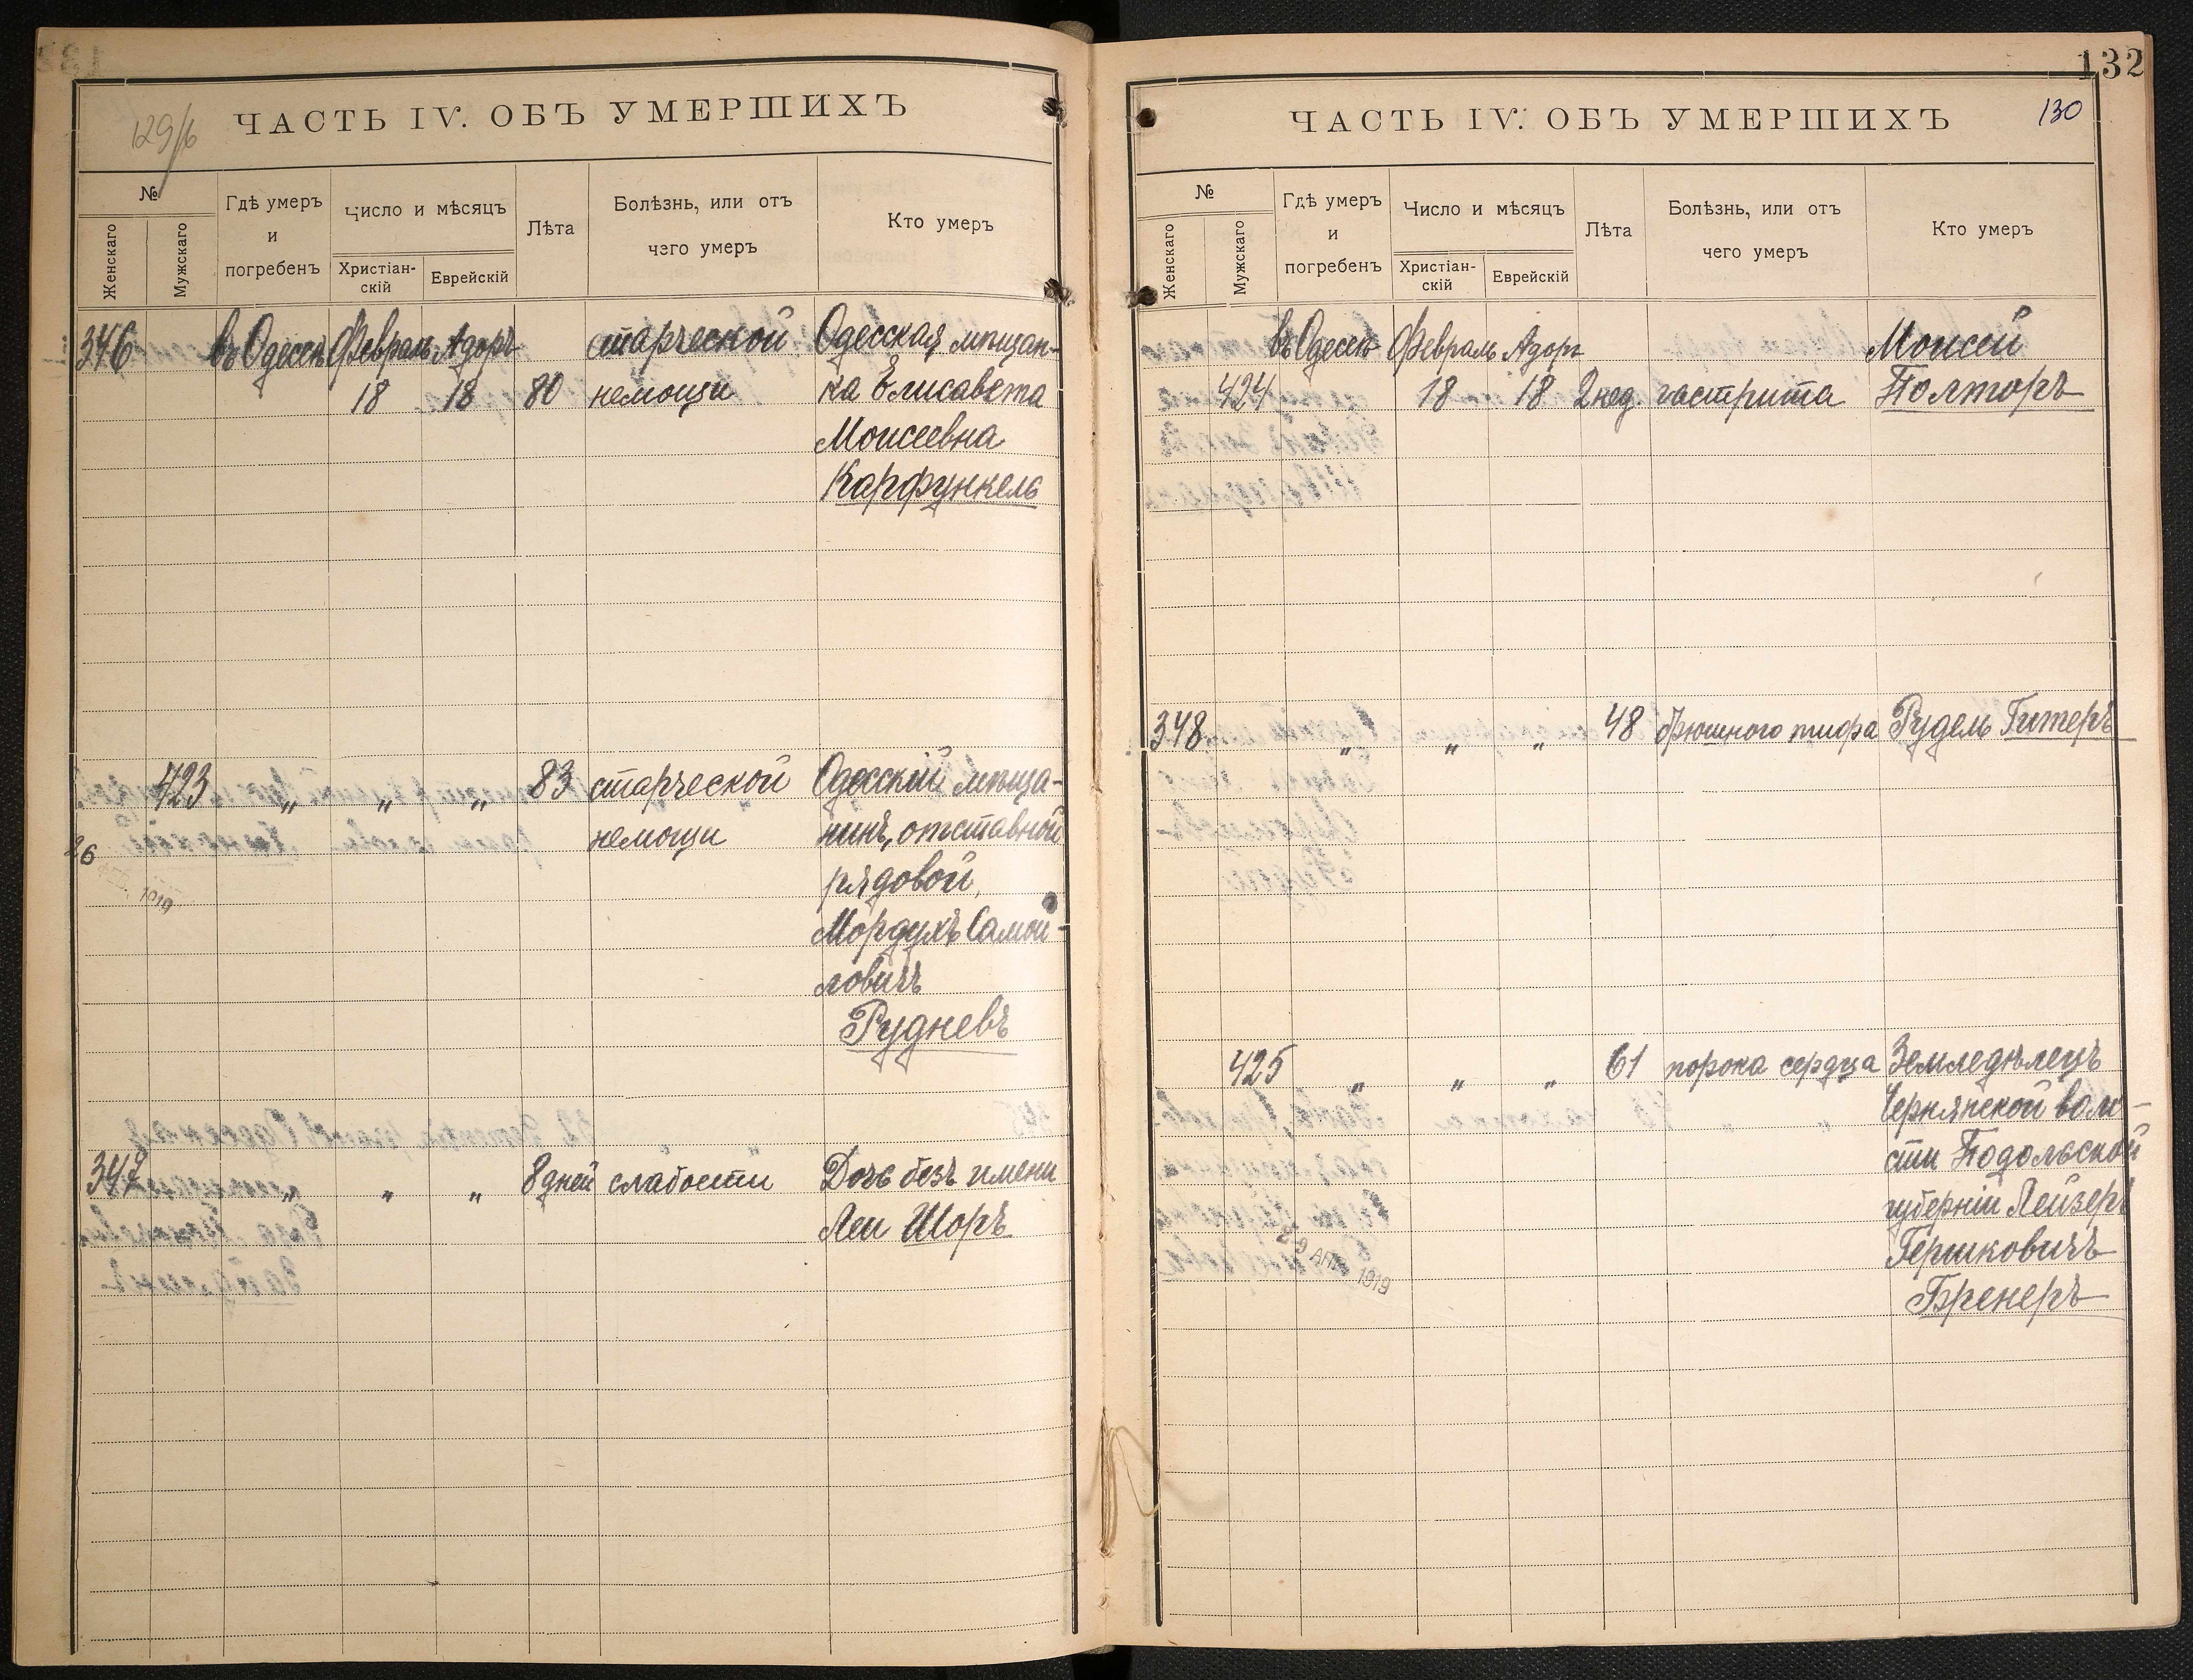 129/б
ЧАСТЬ IV. ОБЪ УМЕРШИХЪ
№
Женскаго
Мужскаго
Гдѣ умеръ и погребенъ
Число и мѣсяцъ
Христіан-
скій
Еврейскій
Лѣта
Болѣзнь, или отъ
чего умеръ
Кто умеръ
346 въ Одессѣ Февраль Адоръ старческой Одесская мѣщан-
18 18 80 немощи ка Елисавета
Моисеевна
Карфункель
423 „ „ „ 83 старческой Одесскій мѣща-
26 немощи нинъ, отставной
1919 рядовой,
Мордухъ Самой-
ловичъ
Рудневъ
347 „ „ „ 8 дней слабости Дочь безъ имени
Леи Шоръ
132
ЧАСТЬ IV. ОБЪ УМЕРШИХЪ
130
№
Женскаго
Мужскаго
Гдѣ умеръ и погребенъ
Число и мѣсяцъ
Христіан-
скій
Еврейскій
Лѣта
Болѣзнь, или отъ
чего умеръ
Кто умеръ
въ Одессѣ Февраль Адоръ Моисей
424 18 18 2 нед. гастрита Полторъ
348 „ „ „ 48 брюшного тифа Рудель Гитеръ
425 „ „ „ 61 порока сердца Земледѣлецъ
Чернянской воло-
сти Подольской
губерніи Лейзеръ
29 АПР 1919 Гершковичъ
Бренеръ